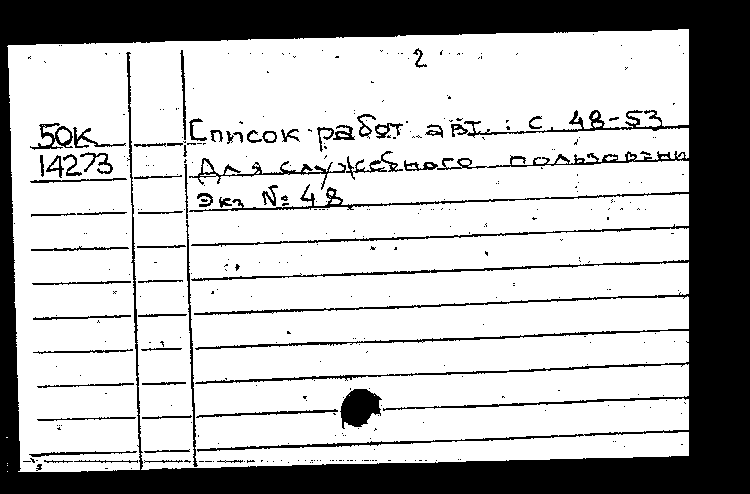 2
50К Список работ авт. : с. 48-53
14273 Для служебного пользовани
Экз. № 48